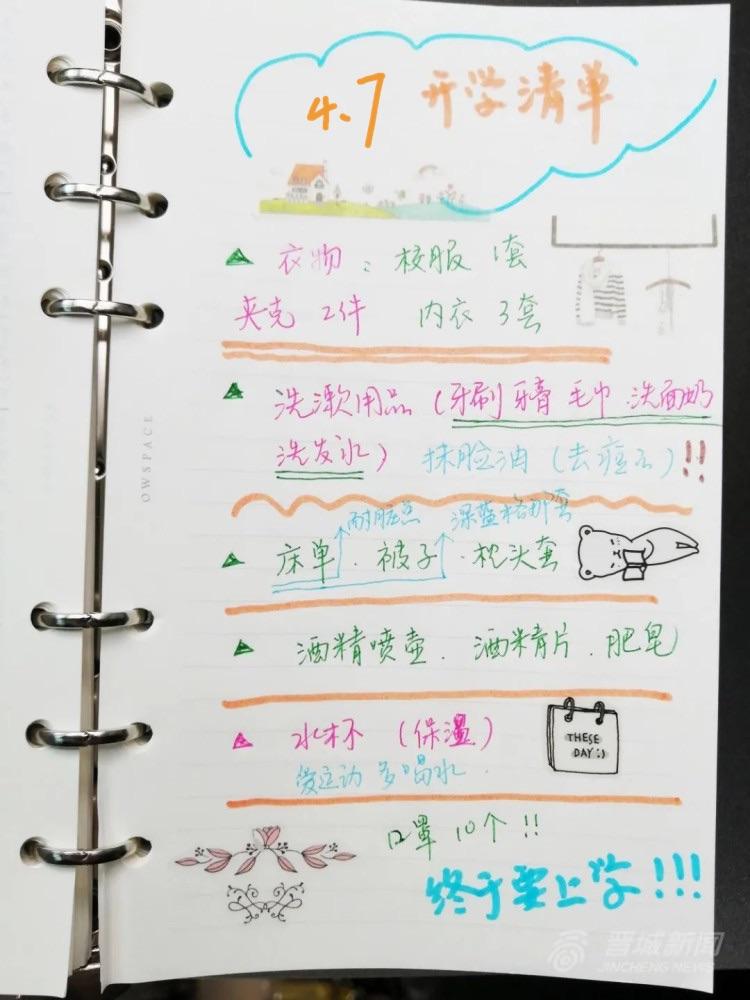 4.7 开学清单
衣物：校服 1套
夹克 2件 内衣 3套
洗漱用品（牙刷 牙膏 毛巾 洗面奶
洗发水） 抹脸油（去痘的）!!
耐脏点 深蓝格那套
床单．被子．枕头套
酒精喷壶．酒精片．肥皂
水杯（保温）
THESE
DAY:)
爱运动 多喝水．
口罩 10个!!
终于要上学!!!
OWSPACE
晋城新闻
JINCHENG NEWS